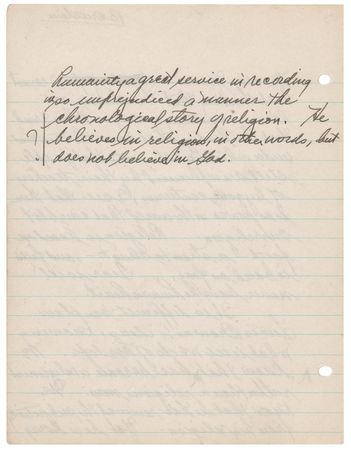 humanity a great service in recording
in so unprejudiced a manner the
chronological story of religion. He
? believes in religion, in other words, but
does not believe in God.